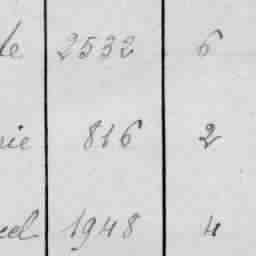 le 2532 6
rie 816 2
cel 1948 4